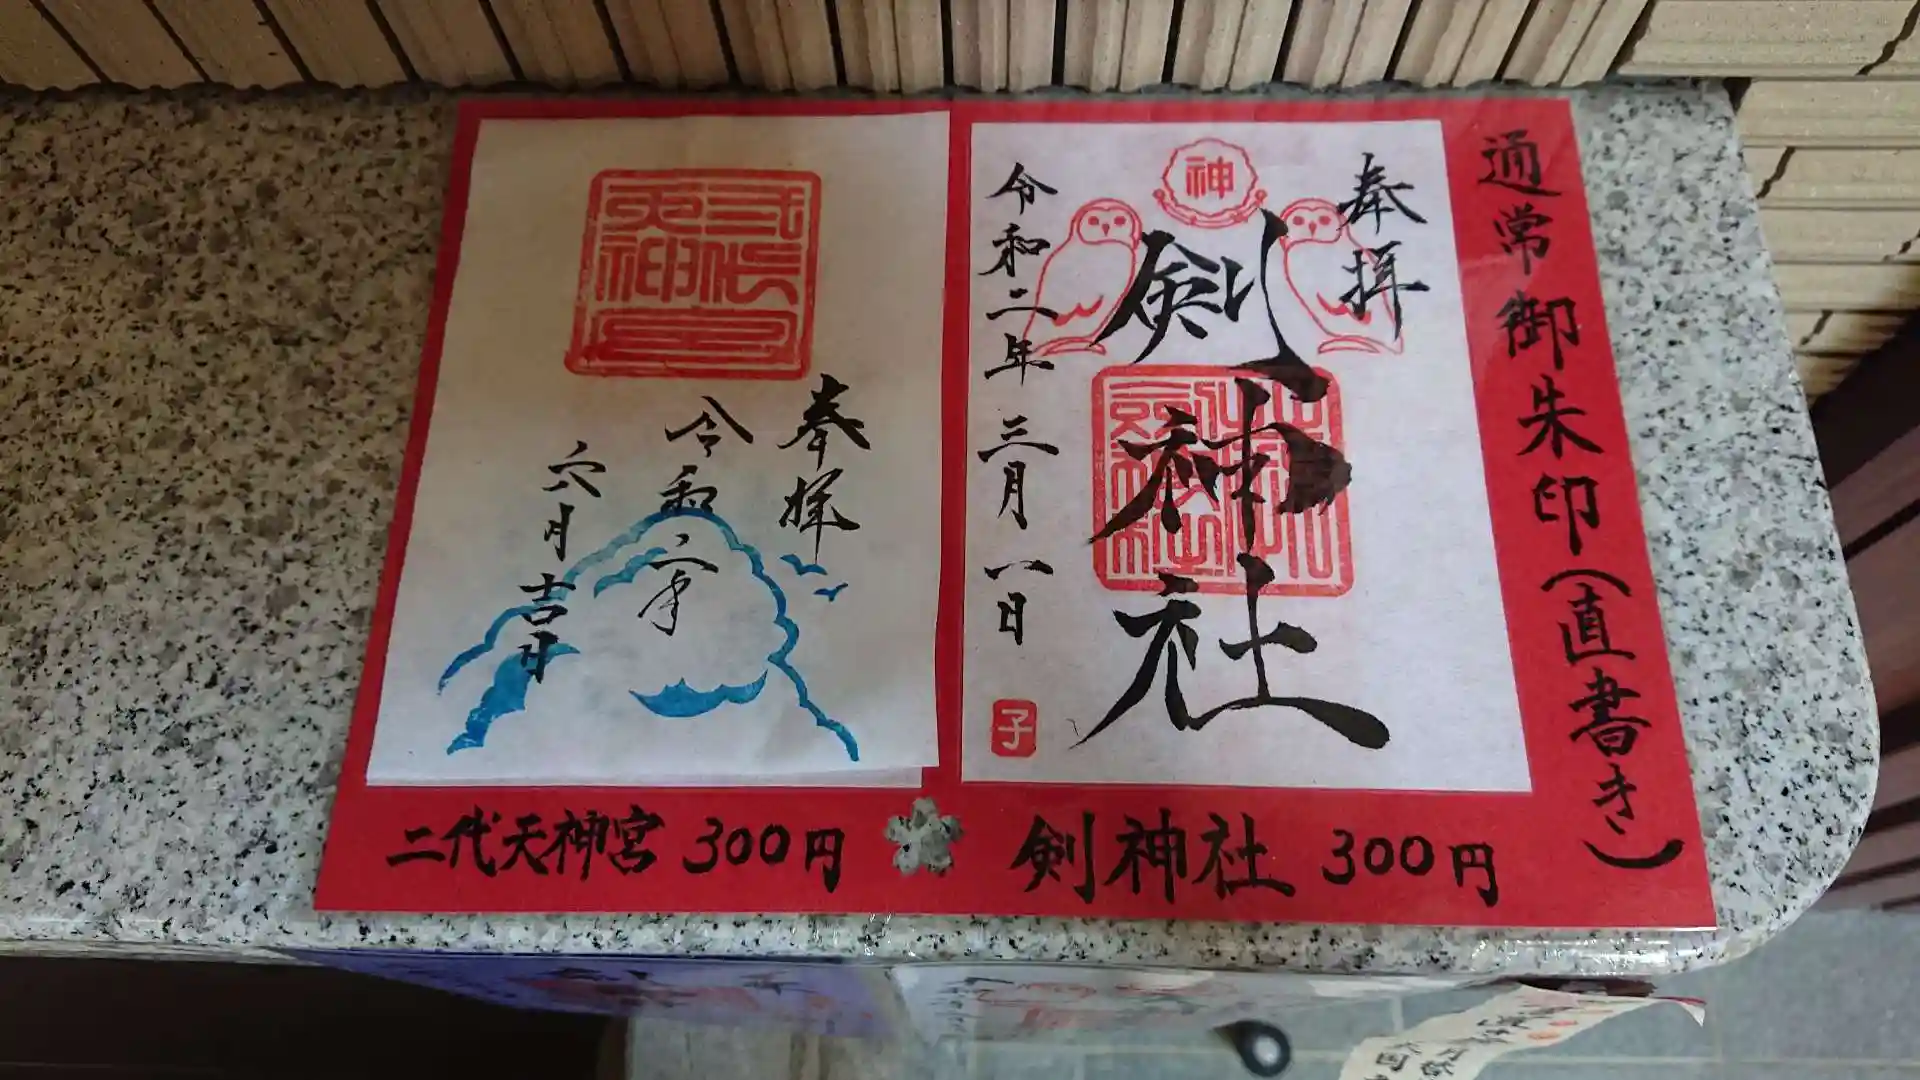 通常御朱印(直書き)
奉拝
神
剣神社
令和二年三月八日
子
剣神社 300円
二代天神宮
奉拝
令和二年
六月吉日
二代天神宮 300円